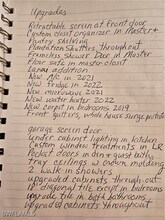 Upgrades
Retractable screen at front door
Custom closet organizer in Master +
Pantry shelving
Plantation Shutters, throughout
Frameless Shower Door at Master
Floor safe in master closet
Lanai addition
New A/C in 2021
New fridge in 2022
New microwave 2021
New water heater 2022
New carpet in bedrooms 2019
Front gutters, whole house surge protector
garage screen door
Under cabinet lighting in kitchen
Custom window treatments in LR
Pocket doors in din + guest baths
Tray ceilings w crown molding
2 walk in showers
upgraded cabinets throughout
18" diagonal tile except in bedrooms
upgrade tile in both bathrooms
Upgraded cabinets throughout